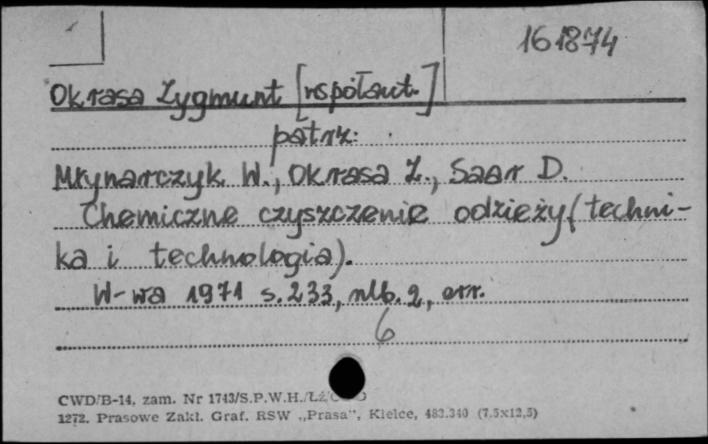 161874
Okrasa Zygmunt [współaut.]
patrz:
Młynarczyk W., Okrasa Z., Saar D.
Chemiczne czyszczenie odzieży (techni-
ka i technologia).
W-wa 1971 s. 233, nlb. 2, err.
6
CWD/B-14, zam. Nr 1743/S.P.W.H./Łź/
1272. Prasowe Zakł. Graf. RSW „Prasa", Kielce, 483.340 (7,5x12,5)